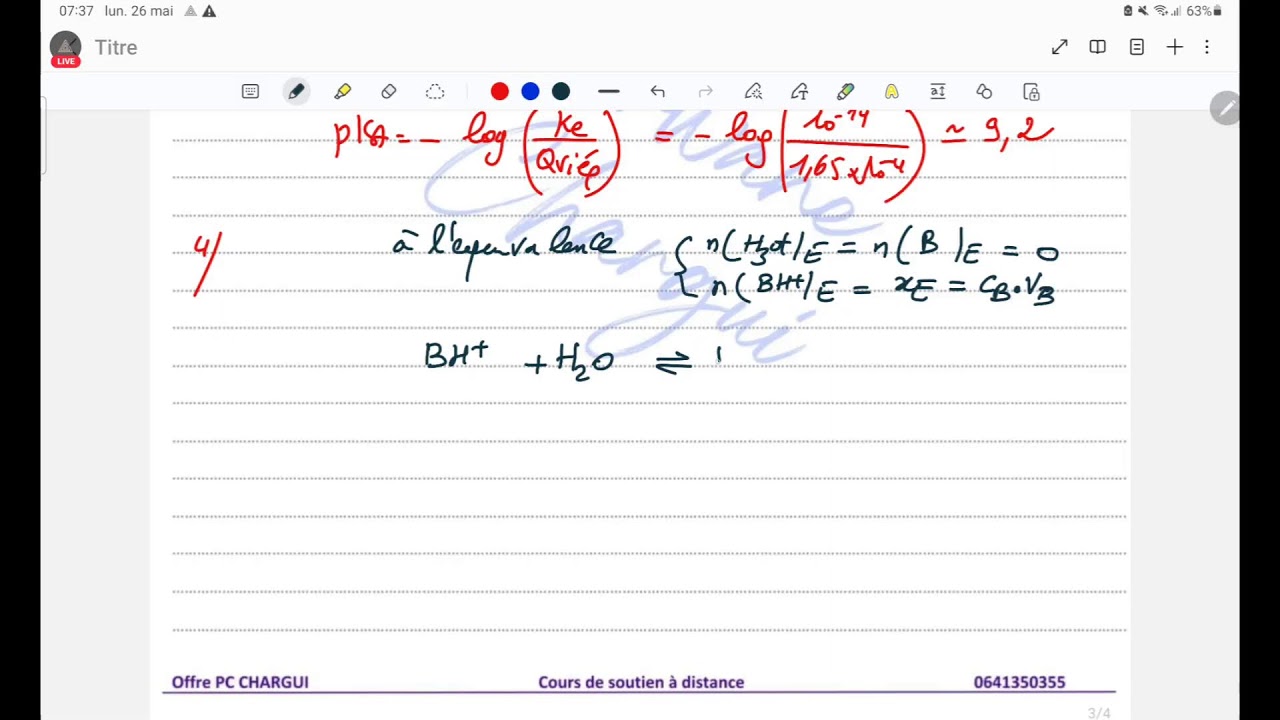 07:37 lun. 26 mai
63%
Titre
LIVE
pKA = - log(Ke/Qriéq) = - log(10-14/1,65 x10-4) ≃ 9,2
4/ à l'equivalence { n(H3O+)E = n(B)E = 0
n(BH+)E = xE = CB.VB
BH+ + H2O ⇌
Chargui
Offre PC CHARGUI Cours de soutien à distance 0641350355
3/4